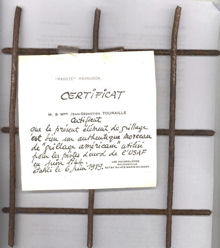 CERTIFICAT
M. & Mme JEAN-SÉBASTIEN TOURAILLE
Certifient
que le présent élément de grillage
est bien un authentique morceau
de "grillage américain" utilisé
pour les pistes d'envol de l'USAF
en juin 1944.
établi le 6 juin 1979.